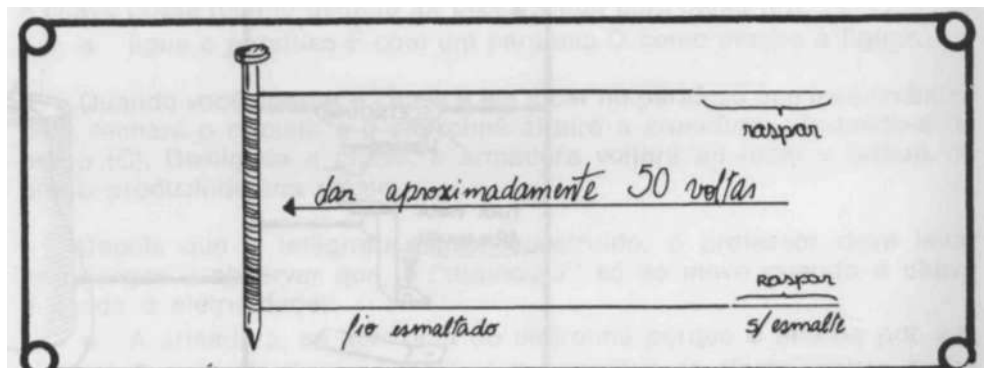 raspar
dar aproximadamente 50 voltas
raspar
fio esmaltado
s/ esmalte